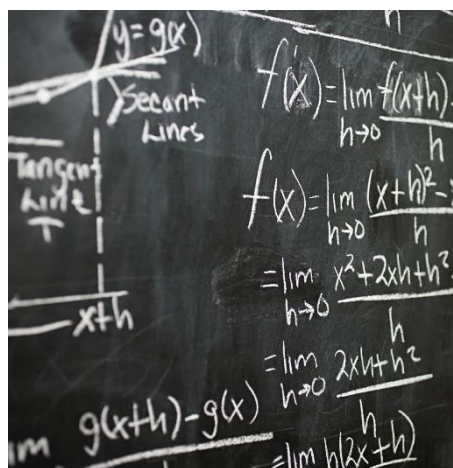 h
y = g(x)
Secant
Lines
Tangent
Line
T
x+h
g(x+h)-g(x)
f'(x) = lim h→0 f(x+h)
h
f(x) = lim h→0 (x+h)² -
h
= lim h→0 x² + 2xh + h²
h
= lim h→0 2xh + h²
h
= lim h(2x+h)